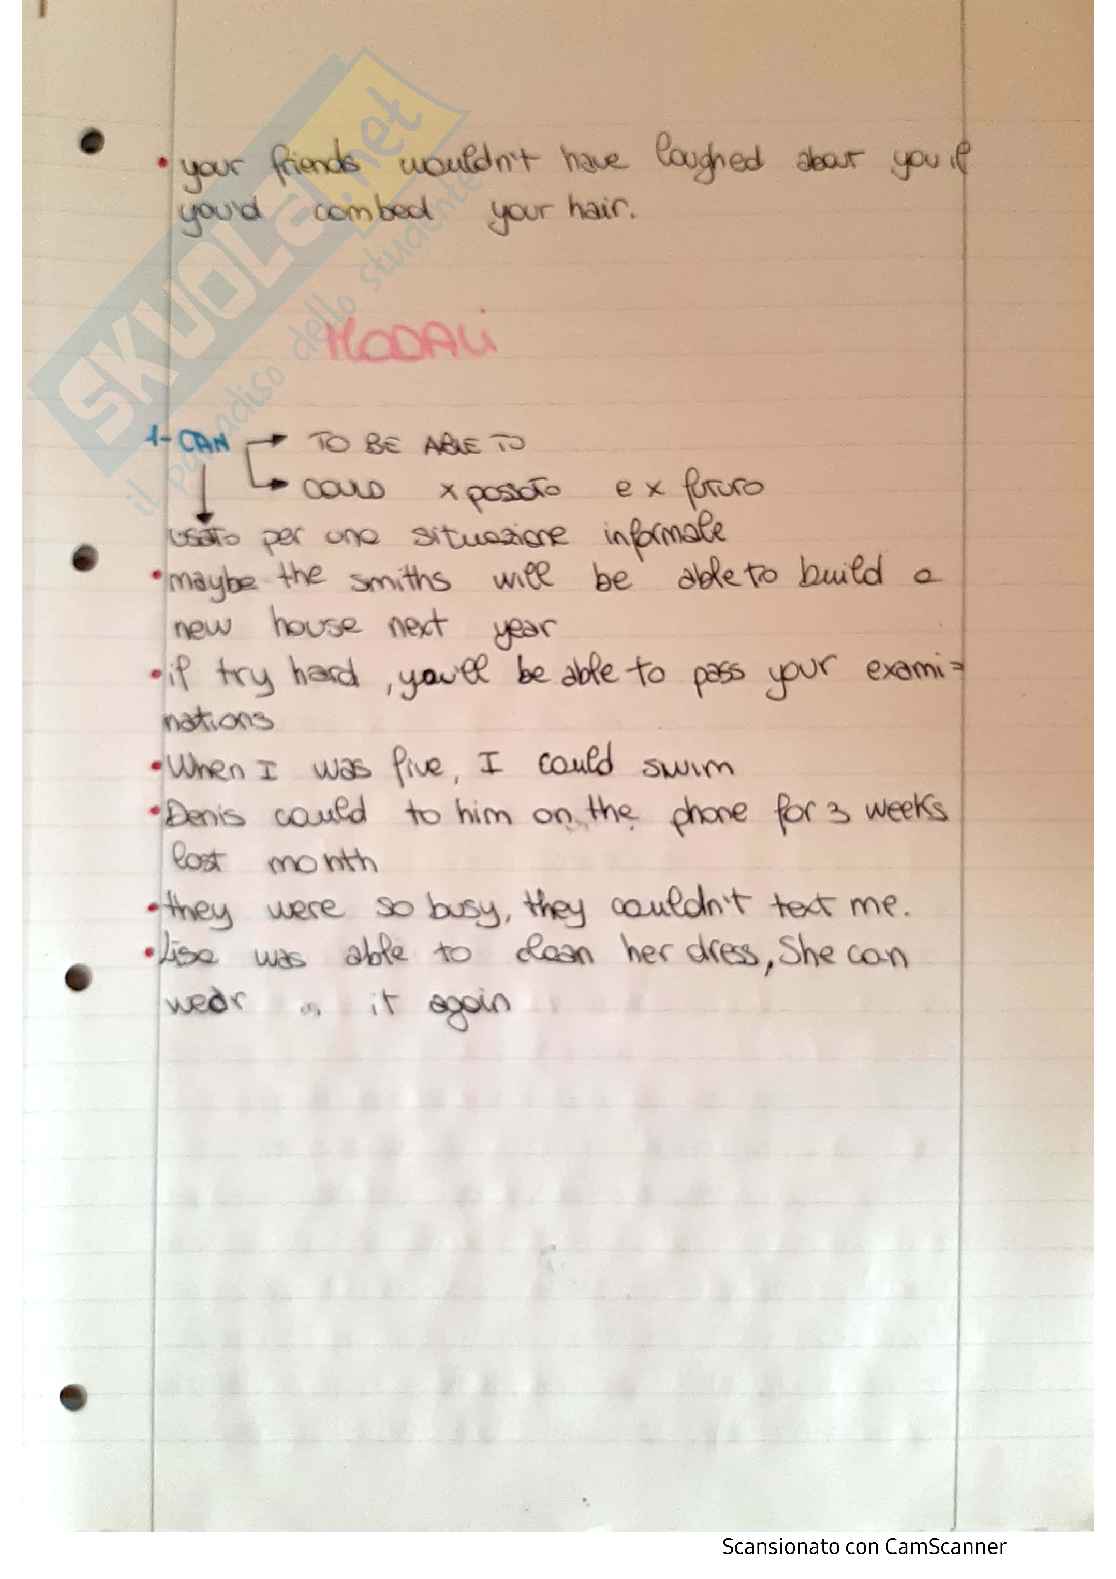 • your friends wouldn't have laughed about you if
you'd combed your hair.
MODALI
1- CAN → TO BE ABLE TO
→ COULD x passato e x futuro
usato per una situazione informale
• maybe the smiths will be able to build a
new house next year
• if try hard, you'll be able to pass your exami=
nations
• When I was five, I could swim
• Denis could to him on the phone for 3 weeks
last month
• they were so busy, they couldn't text me.
• Lisa was able to clean her dress, She can
wear it again
SKUOLA.net
il paradiso dello studente
Scansionato con CamScanner